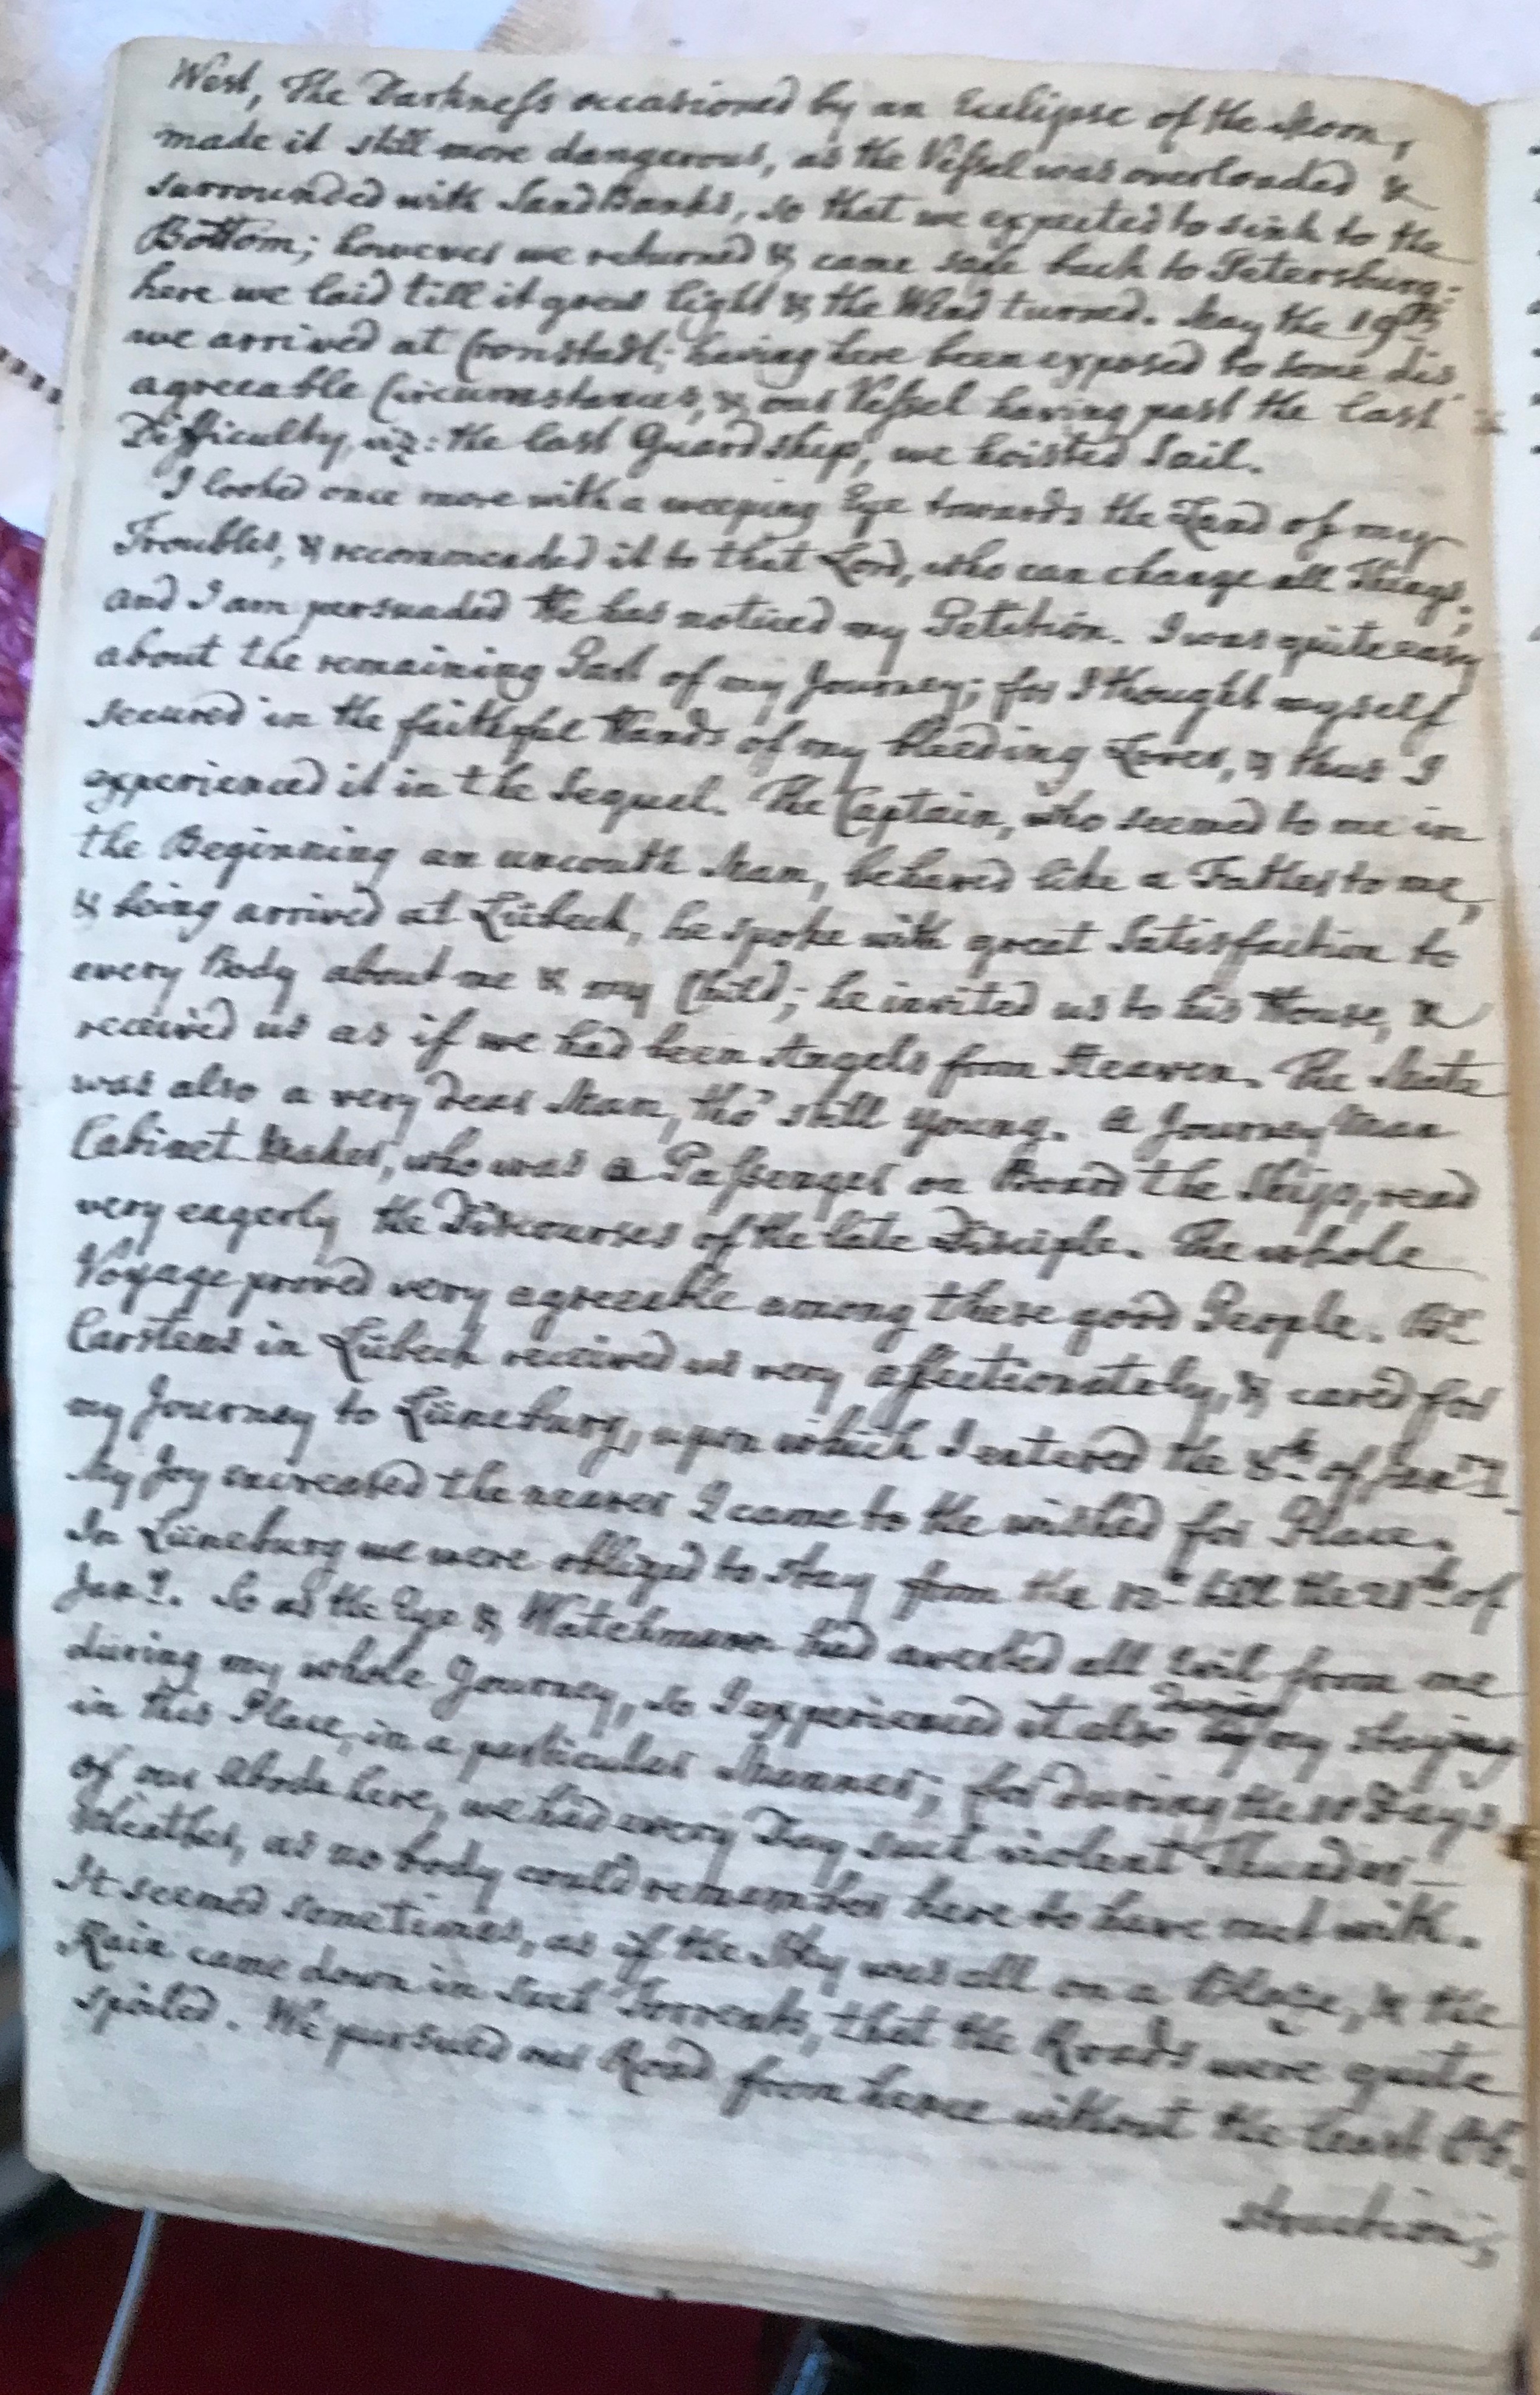 West, The Darkness occasioned by an Ecclipse of the Moon,
made it still more dangerous, as the Vessel was overloaded &
surrounded with Sand Banks, so that we expected to sink to the
Bottom; however we returned & came safe back to Petersburg:
here we laid till it grew light & the Wind turned. May the 19th
we arrived at Cronstadt; having here been exposed to some dis
agreeable Circumstances, & our Vessel having past the last
Difficulty, viz: the last Guard ship, we hoisted Sail.
I looked once more with a weeping Eye towards the Land of my
Troubles, & recommended it to that Lord, who can change all Things;
and I am persuaded He has noticed my Petition. I was quite easy
about the remaining Part of my Journey; for I thought myself
secured in the faithful Hands of my bleeding Lover, & thus I
experienced it in the Sequel. The Captain, who seemed to me in
the Beginning an uncouth Man, behaved like a Father to me,
& being arrived at Lübeck, he spoke with great Satisfaction to
every Body about me & my Child; he invited us to his House, &
received us as if we had been Angels from Heaven. The Mate
was also a very dear Man, tho' still young. A Journey Man
Cabinet Maker, who was a Passenger on Board the Ship, read
very eagerly the Discourses of the late Disciple. The whole
Voyage proved very agreeable among these good People. Br
Carstens in Lübeck received us very affectionately, & cared for
my Journey to Lüneburg, upon which I entered the 8th of
My Joy increased the nearer I came to the wished for Place.
In Lüneburg we were obliged to stay from the till the of
So as the Eye & Watchmann had averted all Evil from me
during my whole Journey, so I experienced it also during my staying
in this Place, in a particular Manner; for during the Days
of our Abode here, we had every Day such violent Thunder
Weather, as no body could remember here to have met with.
It seemed sometimes, as if the Sky was all on a Blaze, & the
Rain came down in such Torrents, that the Roads were quite
spoiled. We pursued our Road from hence without the least Ob-
struction;